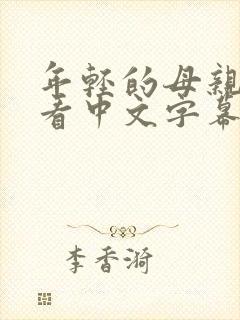 年轻的母亲
看中文字幕
李香漪